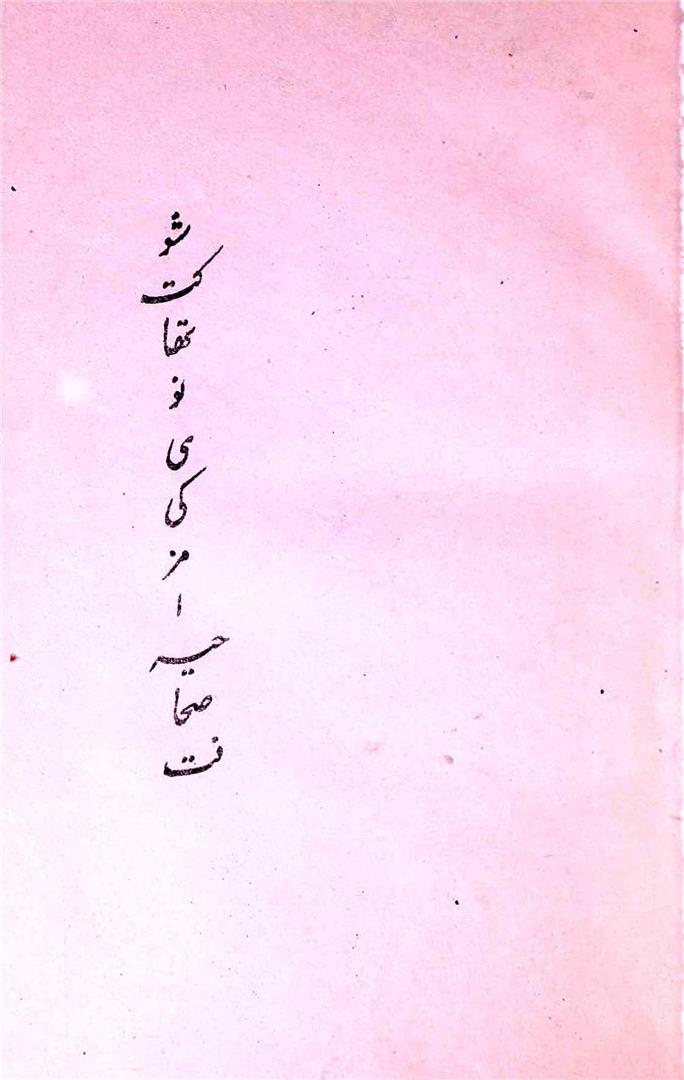 شو
کت
تھا
نو
ی
کی
مز
ا
حیہ
صحا
فت